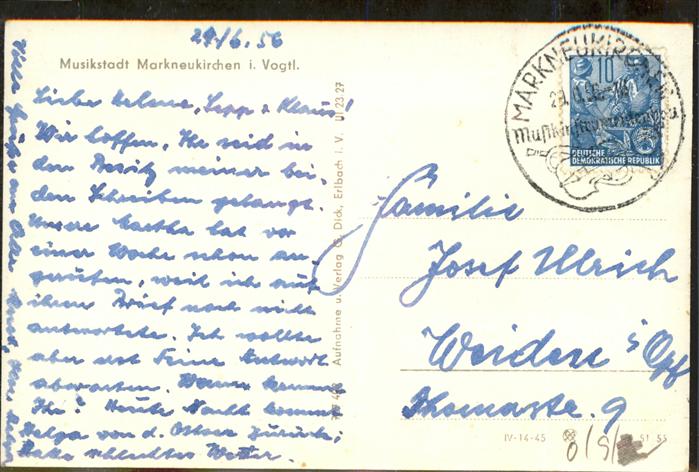 29/6.56
Musikstadt Markneukirchen i. Vogtl.
Lieber Helmu, Sepp u. Klaus!
Wir hoffen, Ihr seid in
den Besitz meiner bei-
den Schreiben gelangt.
Unsre Martha hat vor
einer Woche schon an-
gerufen, weil ich auf
ihren Brief noch nicht
antwortete. Ich wollte
aber erst Feine Antwort
abwarten. Wann kommt
Ihr? Heute Nacht kommt
Helga von d. Ostsee zurück;
hatte schlechtes Wetter.
Viele Grüße an Alle
Aufnahme u. Verlag G. Dick, Erlbach i. V. U1 23 27
MARKNEUKIRCHEN
10
DEUTSCHE
DEMOKRATISCHE REPUBLIK
Familie
Josef Ullrich
Weiden i/Opf
Thomastr. 9
IV-14-45
51 55